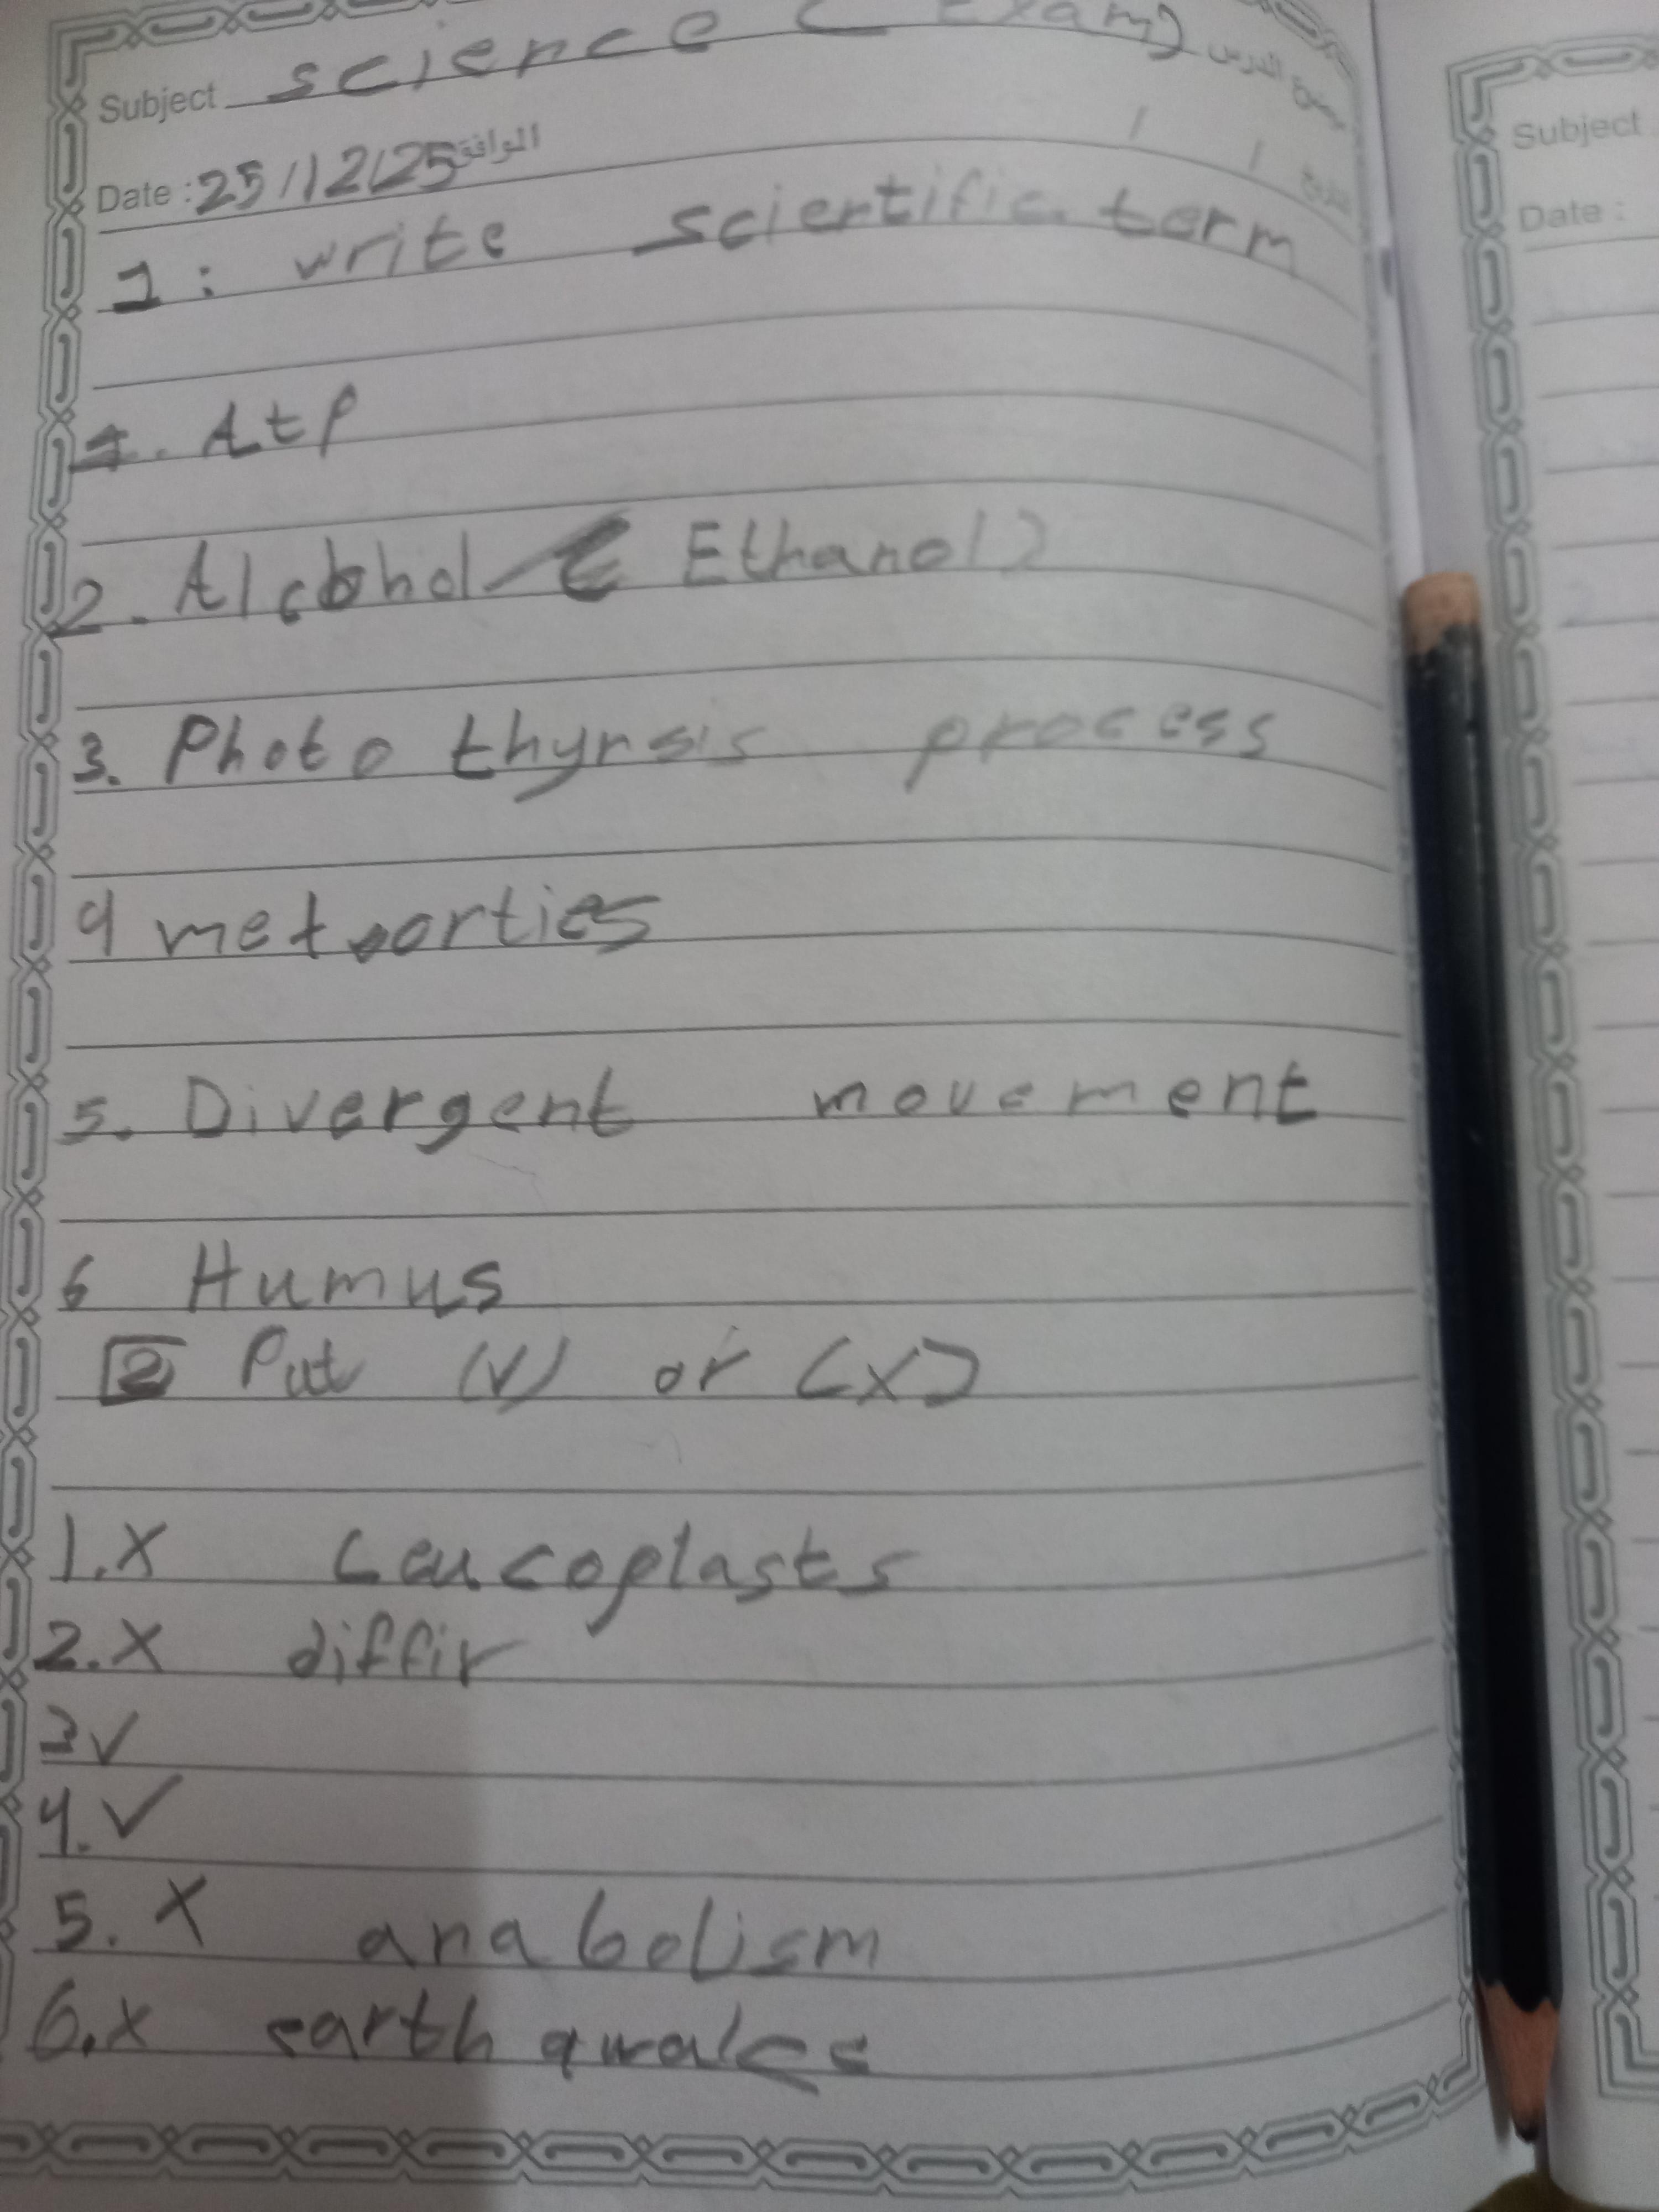 Subject science ( Exam) موضوع الدرس
Date : 25/12/25 الموافق / / التاريخ
1 : write scientific term
1. Atp
2. Alcohol ( Ethanol)
3. Photo thynsis process
4 meteorties
5. Divergent movement
6 Humus
2 Put (√) or (x)
1. X Leucoplasts
2. X diffir
3 ✓
4. ✓
5. X anabolism
6. x earth quakes
Subject
Date :